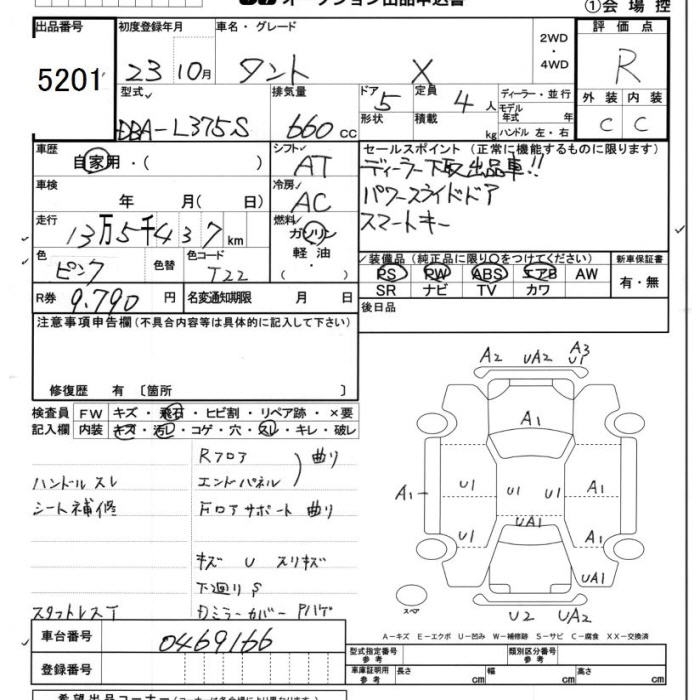 オークション出品申込書
①会場控
出品番号 5201
初度登録年月 23 10月
車名・グレード タント X
2WD・4WD
評価点 R
型式 DBA-L375S
排気量 660 cc
ドア 5
形状
定員 4人
積載 kg
ディーラー・並行
モデル年式 年
ハンドル 左・右
外装 C
内装 C
車歴 自家用・( )
シフト AT
セールスポイント (正常に機能するものに限ります)
ディーラー下取出品車!!
パワースライドドア
スマートキー
車検 年 月( 日)
冷房 AC
走行 13万5千437km
燃料 ガソリン
軽油
・
( )
色 ピンク
色替
色コード T22
装備品 (純正品に限り○をつけてください)
新車保証書
PS PW ABS エアB AW
有・無
SR ナビ TV カワ
R券 9,790円
名変通知期限 月 日
後日品
注意事項申告欄(不具合内容等は具体的に記入して下さい)
修復歴 有 〔箇所 〕
検査員 FW キズ・飛石・ヒビ割・リペア跡・×要
記入欄 内装 キズ・汚レ・コゲ・穴・スレ・キレ・破レ
Rフロア
エンドパネル ) 曲り
ハンドルスレ
シート補修
Fロアサポート 曲り
キズ U スリキズ
下廻りS
スタットレスT
ミラーカバーPハゲ
A2 UA2 A3
U1
A1
A1 U1 U1 U1 A1
UA1
U1 A1
UA1
スペア
U2 UA2
A-キズ E-エクボ U-凹み W-補修跡 S-サビ C-腐食 XX-交換済
車台番号 0469166
登録番号
型式指定番号 参考
類別区分番号 参考
車庫証明用 参考 長さ cm 幅 cm 高さ cm
希望出品コーナー